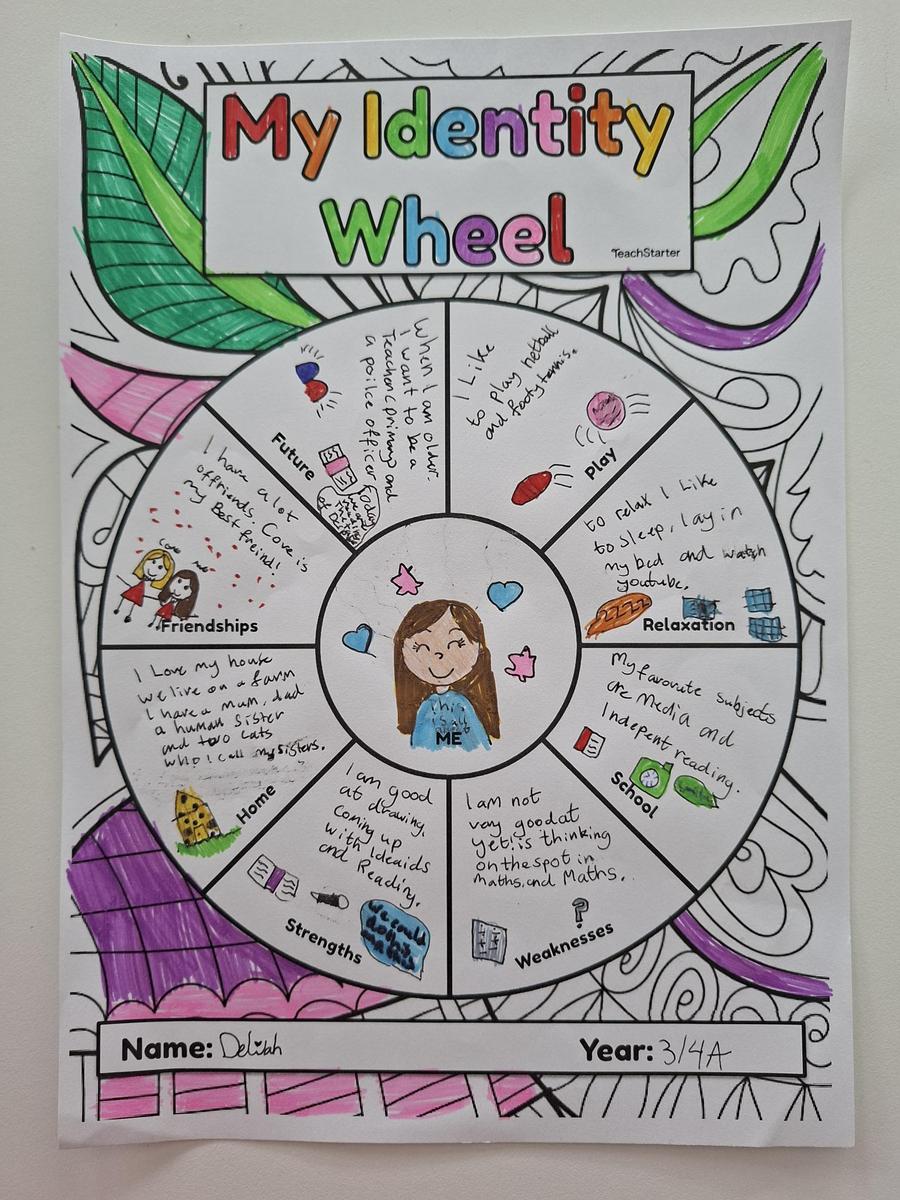 My Identity
Wheel
TeachStarter
When I am older.
I want to be a
Teacher(primary) and
a poilce officer
Today
Future
I Like
to play netball
and footy tennis.
Play
I have a lot
offriends. Cove is
my Best freind!
Cove
Me
Friendships
to relax I Like
to sleep, I lay in
my bed and watch
youtube.
Relaxation
This
is all
about
ME
I Love my house
we live on a farm
I have a mum, dad
a human sister
and two cats
who I call my sisters.
Home
My favourite subjects
are Media and
Indepent reading.
School
I am good
at drawing.
Coming up
with Ideaids
and Reading.
we could
do that
maybe
Strengths
I am not
very good at
yet! is thinking
on the spot in
maths, and Maths.
?
Weaknesses
Name: Delilah
Year: 3/4A